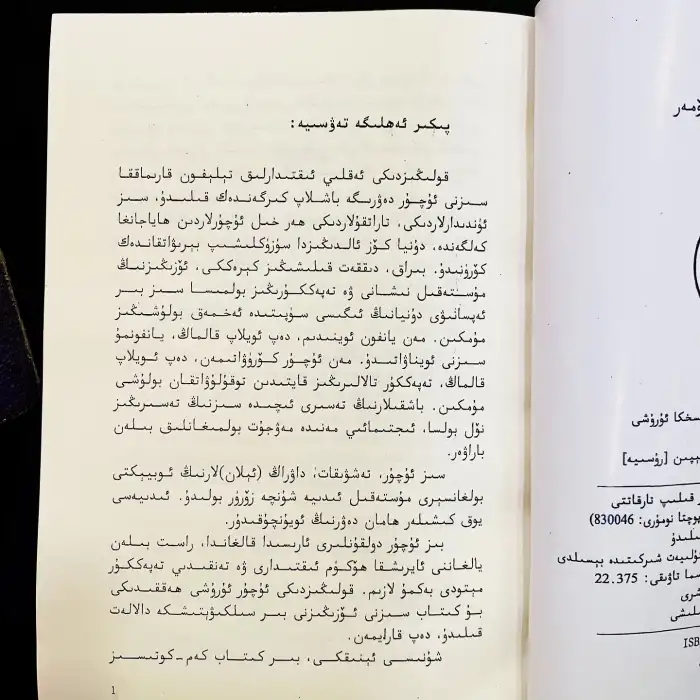 پىكىر ئەھلىگە تەۋسىيە:
قولىڭىزدىكى ئەقلىي ئىقتىدارلىق تېلېفون قارىماققا
سىزنى ئۇچۇر دەۋرىگە باشلاپ كىرگەندەك قىلىدۇ، سىز
ئۈندىدارلاردىكى، تاراتقۇلاردىكى ھەر خىل ئۇچۇرلاردىن ھاياجانغا
كەلگەندە، دۇنيا كۆز ئالدىڭىزدا سۈزۈكلىشىپ بېرىۋاتقاندەك
كۆرۈنىدۇ. بىراق، دىققەت قىلىشىڭىز كېرەككى، ئۆزىڭىزنىڭ
مۇستەقىل نىشانى ۋە تەپەككۇرىڭىز بولمىسا سىز بىر
ئەپسانىۋى دۇنيانىڭ ئىگىسى سۈپىتىدە ئەخمەق بولۇشىڭىز
مۇمكىن. مەن يانفون ئوينىدىم، دەپ ئويلاپ قالماڭ، يانفونمۇ
سىزنى ئوينىۋاتىدۇ. مەن ئۇچۇر كۆرۈۋاتىمەن، دەپ ئويلاپ
قالماڭ، تەپەككۇر تالالىرىڭىز قايتىدىن توقۇلۇۋاتقان بولۇشى
مۇمكىن. باشقىلارنىڭ تەسىرى ئىچىدە سىزنىڭ تەسىرىڭىز
نۆل بولسا، ئىجتىمائىي مەنىدە مەۋجۇت بولمىغانلىق بىلەن
باراۋەر.
سىز ئۇچۇر، تەشۋىقات، داۋراڭ (ئېلان)لارنىڭ ئوبيېكتى
بولغانسېرى مۇستەقىل ئىدىيە شۇنچە زۆرۈر بولىدۇ. ئىدىيەسى
يوق كىشىلەر ھامان دەۋرنىڭ ئويۇنچۇقىدۇر.
بىز ئۇچۇر دولقۇنلىرى ئارىسىدا قالغاندا، راست بىلەن
يالغاننى ئايرىشقا ھۆكۈم ئىقتىدارى ۋە تەنقىدىي تەپەككۇر
مېتودى بەكمۇ لازىم. قولىڭىزدىكى ئۇچۇر ئۇرۇشى ھەققىدىكى
بۇ كىتاب سىزنى ئۆزىڭىزنى بىر سىلكىۋېتىشكە دالالەت
قىلىدۇ، دەپ قارايمەن.
شۇنىسى ئېنىقكى، بىر كىتاب كەم-كوتىسىز
1
ئۇرۇشى
[رۇسىيە]
ر قىلىپ تارقاتتى
نومۇرى: 830046)
شىركىتىدە بېسىلدى
تاۋىقى: 22.375
ISB